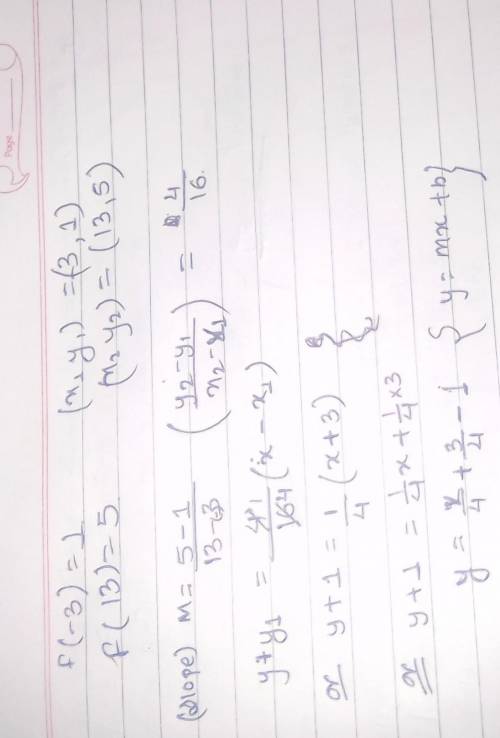 Page
f(-3) = 1 (x1 y1) = (3, 1)
f(13) = 5 (x2 y2) = (13, 5)
(slope) m = 5-1/13-3 (y2-y1/x2-x1) = 4/16.
y+y1 = 4 1/16 4 (x - x1)
or y+1 = 1/4 (x+3)
or y+1 = 1/4 x + 1/4 × 3
y = x/4 + 3/4 - 1 {y = mx + b}